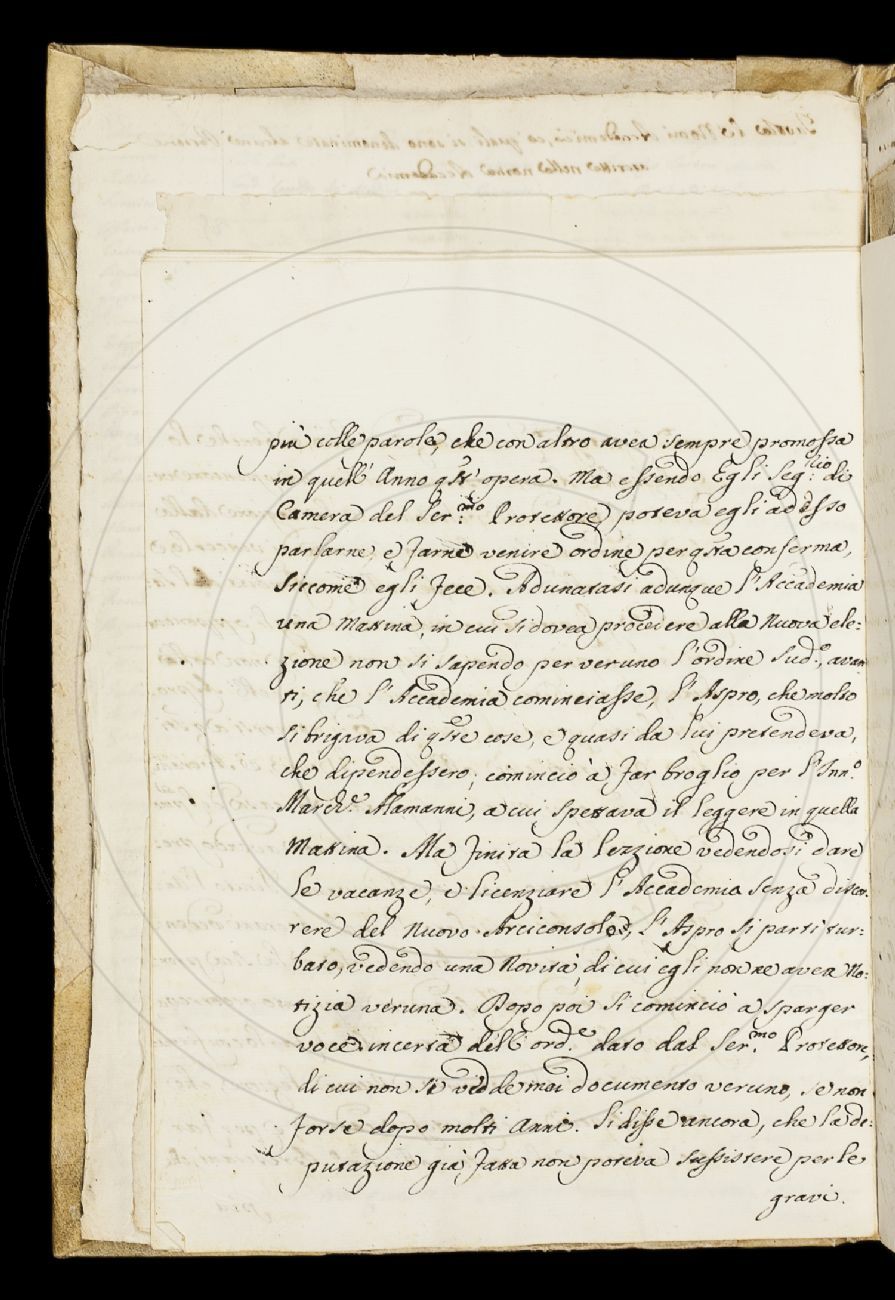 più colle parole, che con altro avea sempre promossa
in quell' Anno qst' opera. Ma essendo Egli Seg.rio di
Camera del Ser.mo Protettore poteva egli adesso
parlarne, e farne venire ordine per qsta conferma,
siccome egli fece. Adunatasi adunque l'Accademia
una Mattina, in cui si dovea procedere alla Nuova ele:
zione non si sapendo per veruno l'ordine Sud.o, avan
ti, che l'Accademia cominciasse, l'Aspro, che molto
si brigava di qste cose, e quasi da lui pretendeva,
che dipendessero, cominciò à far broglio per l'Inn.o
March.e Alamanni, a cui spettava il leggere in quella
Mattina. Ma finita la lezzione vedendosi dare
le vacanze, e licenziare l'Accademia senza discor:
rere del Nuovo Arciconsolo, l'Aspro si partì tur:
bato, vedendo una Novità, di cui egli non ne avea No:
tizia veruna. Dopo poi si cominciò a sparger
voce incerta dell' ord.e dato dal Ser.mo Protettore,
di cui non si vedde mai documento veruno, se non
forse dopo molti Anni. Si disse ancora, che la de:
putazione già fatta non poteva sussistere per le
gravi.